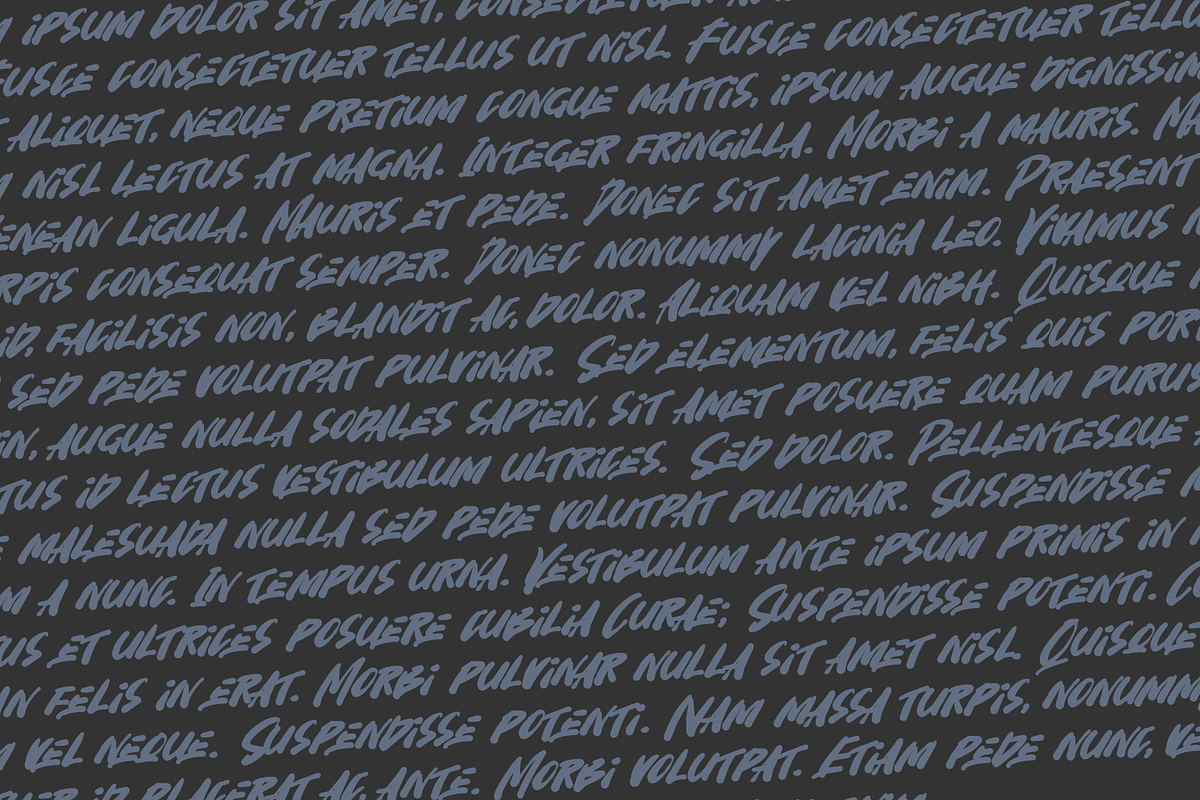 ipsum dolor sit amet, consectetuer
Fusce consectetuer tellus ut nisl. Fusce consectetuer tellus
aliquet, neque pretium congue mattis, ipsum augue dignissim
nisl lectus at magna. Integer fringilla. Morbi a mauris.
ligula. Mauris et pede. Donec sit amet enim. Praesent
consequat semper. Donec nonummy lacinia leo. Vivamus
id, facilisis non, blandit ac, dolor. Aliquam vel nibh. Quisque
sed pede volutpat pulvinar. Sed elementum, felis quis
augue nulla sodales sapien, sit amet posuere quam purus
id lectus vestibulum ultrices. Sed dolor. Pellentesque
malesuada nulla sed pede volutpat pulvinar. Suspendisse
a nunc. In tempus urna. Vestibulum ante ipsum primis in
et ultrices posuere cubilia Curae; Suspendisse potenti.
felis in erat. Morbi pulvinar nulla sit amet nisl. Quisque
vel neque. Suspendisse potenti. Nam massa turpis, nonummy
id placerat ac, ante. Morbi volutpat. Etiam pede nunc,